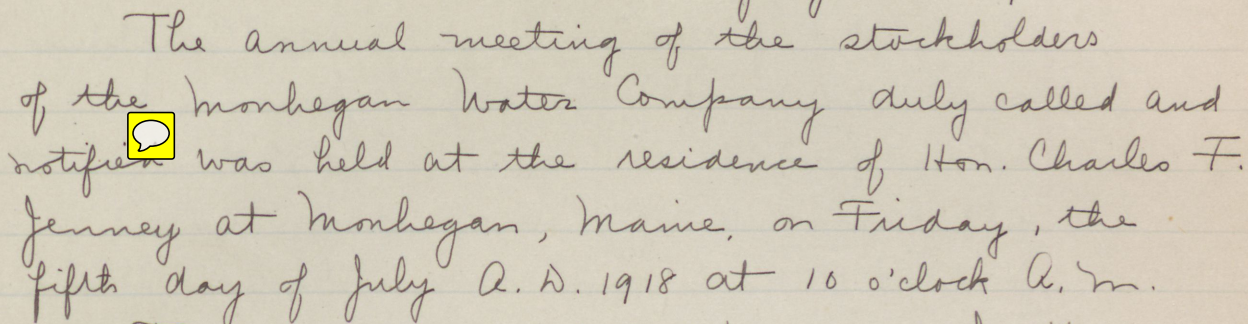 The annual meeting of the stockholders
of the Monhegan Water Company duly called and
notified was held at the residence of Hon. Charles F.
Jenney at Monhegan, Maine, on Friday, the
fifth day of July A. D. 1918 at 10 o'clock A. M.